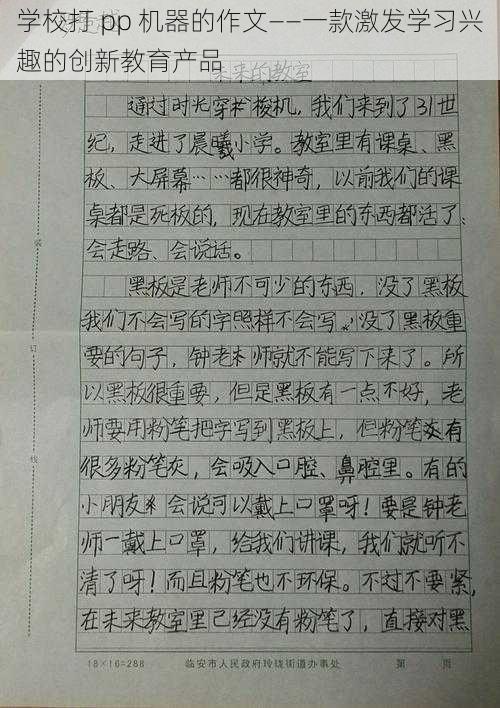 学校打 pp 机器的作文——一款激发学习兴
趣的创新教育产品
未来的教室
通过时光穿梭机，我们来到了31世
纪，走进了晨曦小学。教室里有课桌、黑
板、大屏幕……都很神奇，以前我们的课
桌都是死板的，现在教室里的东西都活了：
会走路、会说话。
黑板是老师不可少的东西，没了黑板
我们不会写的字照样不会写，没了黑板重
要的句子，钟老师就不能写下来了。所
以黑板很重要，但是黑板有一点不好，老
师要用粉笔把字写到黑板上，但粉笔有
很多粉笔灰，会吸入口腔、鼻腔里。有的
小朋友会说可以戴上口罩呀！要是钟老
师一戴上口罩，给我们讲课，我们就听不
清了呀！而且粉笔也不环保。不过不要紧，
在未来教室里已经没有粉笔了，直接对黑
装
订
线
18×16=288 临安市人民政府玲珑街道办事处 第 页